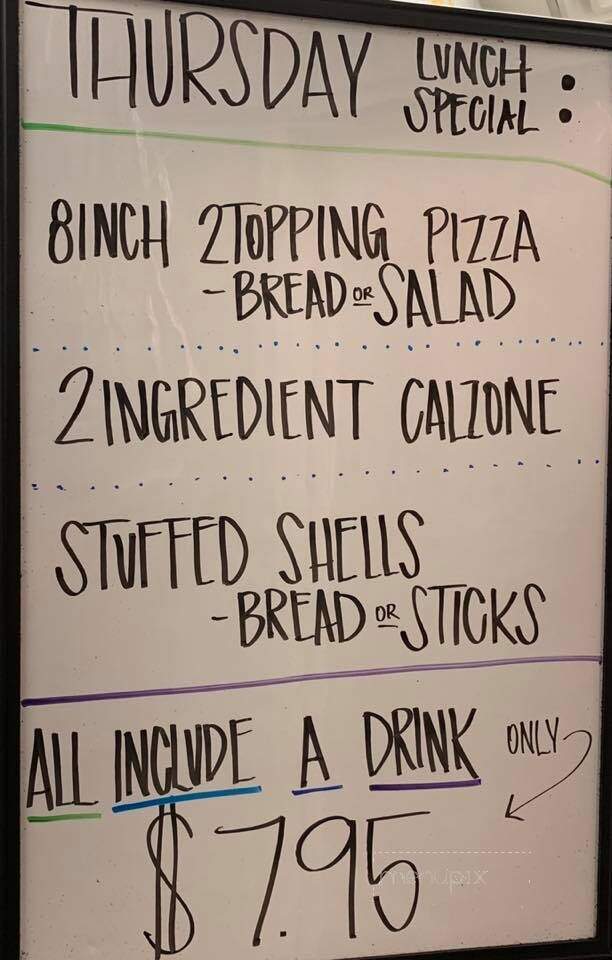 THURSDAY LUNCH
SPECIAL :
8INCH 2TOPPING PIZZA
- BREAD OR SALAD
2 INGREDIENT CALZONE
STUFFED SHELLS
- BREAD OR STICKS
ALL INCLUDE A DRINK ONLY
$7.95
menupix